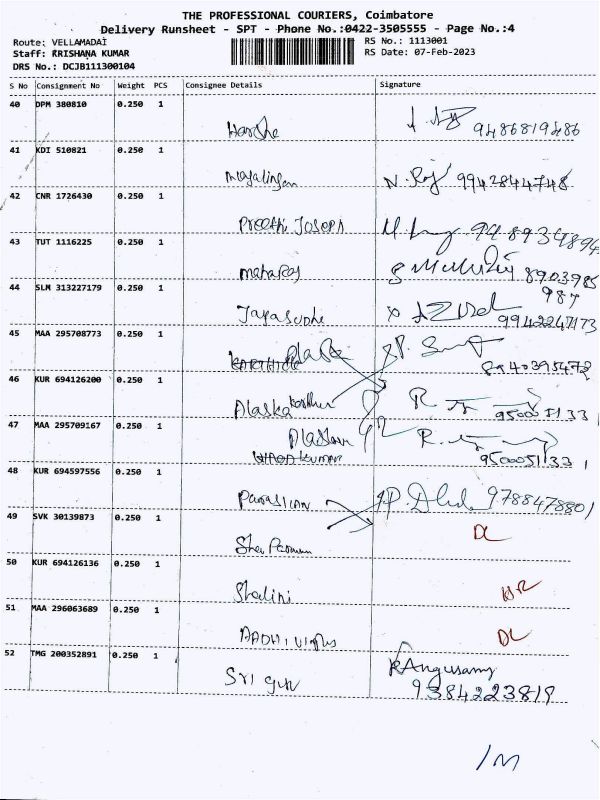 THE PROFESSIONAL COURIERS, Coimbatore
Delivery Runsheet - SPT - Phone No.:0422-3505555 - Page No.:4
Route: VELLAMADAI RS No.: 1113001
Staff: KRISHANA KUMAR RS Date: 07-Feb-2023
DRS No.: DCJB111300104
S No Consignment No Weight PCS Consignee Details Signature
40 DPM 380810 0.250 1
Harsha 9486819486
41 KDI 510821 0.250 1
Mayalingam N. Raj 9942844748
42 CNR 1726430 0.250 1
Preethi Joseph
43 TUT 1116225 0.250 1
Maharaj 8903985
987
44 SLM 313227179 0.250 1
Jayasudha 9942247173
45 MAA 295708773 0.250 1
Karthick 8940395472
46 KUR 694126200 0.250 1
Alaska R 9500051331
47 MAA 295709167 0.250 1
R 9500051331
48 KUR 694597556 0.250 1
9788478801
49 SVK 30139873 0.250 1
DL
50 KUR 694126136 0.250 1
Shalini
51 MAA 296063689 0.250 1
DL
52 TMG 200352891 0.250 1
Sri Guru RAngusamy
9384223819